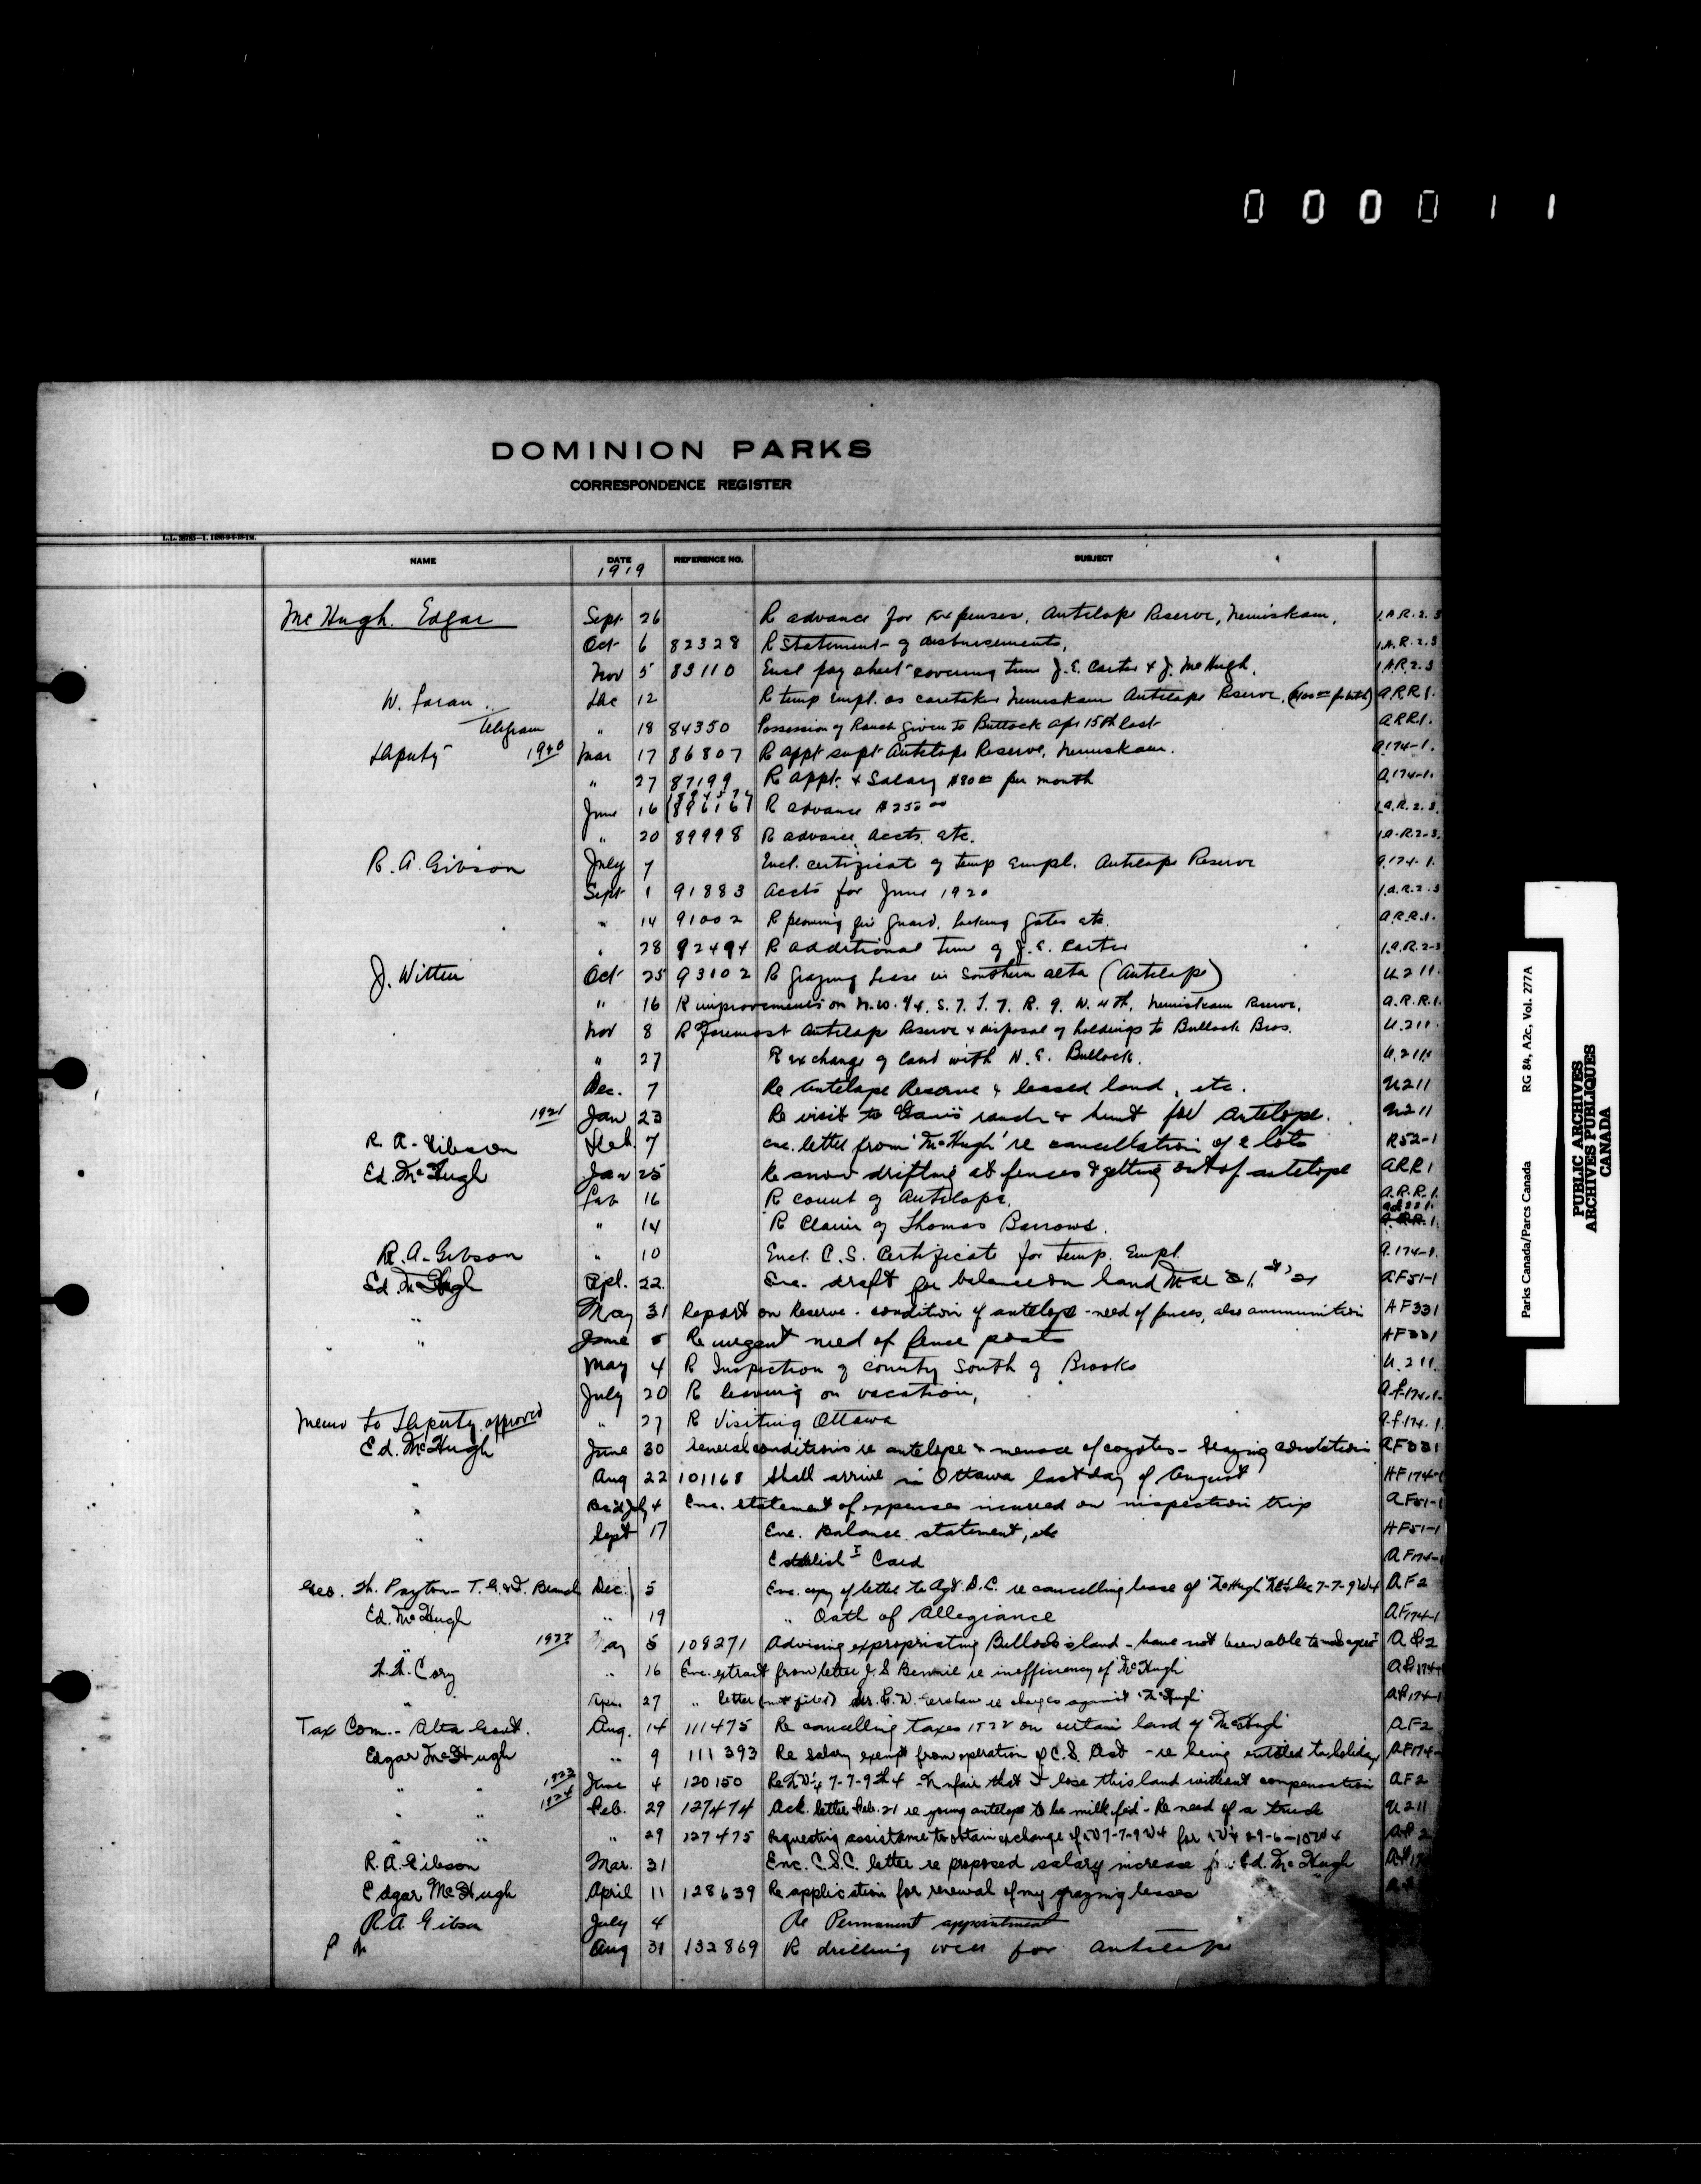 000011
DOMINION PARKS
CORRESPONDENCE REGISTER
NAME DATE REFERENCE NO. SUBJECT
1919
McHugh. Edgar Sept 26 R advance for Expenses, Antelope Reserve, Nemiskam, 1.A.R.2.3
Oct 6 82328 R Statement of disbursements, 1.A.R.2.3
Nov 5 83110 Encl pay sheet covering time J.E. Carter & J. McHugh. 1.A.R.2.3
W. Dec 12 R temp Empl. as caretaker Nemiskam Antelope Reserve. A.R.R.1.
Telegram " 18 84350 Possession of Ranch given to Bullock apr 15th last A.R.R.1.
Deputy Mar 17 86807 R appt supt Antelope Reserve, Nemiskam. A.174-1.
" 27 87199 R appt. & Salary $80 per month A.174-1.
June 16 R advance $250 00 1.A.R.2.3.
" 20 89998 R advance, accts, etc. 1.A.R.2-3.
R.A. Gibson July 7 Encl. certificate of temp empl. Antelope Reserve A.174-1.
Sept 1 91883 Accts for June 1920 1.A.R.2.3
" 14 91002 R plowing fire guard, locking gates etc. A.R.R.1.
" 28 92494 R additional time of J.E. Carter 1.A.R.2-3
J. Witten Oct 25 93102 R Grazing Lease in Southern Alta (Antelope) U.211.
" 16 R improvements on N.W. 1/4. S. 7. T. 7. R. 9. W. 4th, Nemiskam Reserve. A.R.R.1.
Nov 8 R Foremost Antelope Reserve & disposal of holdings to Bullock Bros. U.211.
" 27 R exchange of land with N.E. Bullock. U.211.
Dec. 7 Re Antelope Reserve & leased land, etc. U211
1921 Jan 23 Re visit to ranch & hunt for antelope. U211
R. A. Gibson Feb. 7 enc. letter from McHugh re cancellation of 2 lots R52-1
Ed. McHugh Jan 25 Re snow drifting at fences & getting out of antelope ARR1
Feb 16 R count of Antelope. A.R.R.1.
" 14 R Claim of Thomas Barrows.
R.A. Gibson " 10 Encl. C.S. Certificate for Temp. Empl. A.174-1.
Ed. McHugh Apl. 22. Enc. draft for balance on hand Mar 31st '21 AF51-1
" May 31 Report on Reserve - condition of antelope - need of fences, also ammunition AF331
" June Re urgent need of fence posts AF331
May 4 R Inspection of country South of Brooks U.211.
July 20 R leaving on vacation, A.F.174.1.
Memo to Deputy approved " 27 R Visiting Ottawa A.F.174.1.
Ed. McHugh June 30 General conditions re antelope & menace of coyotes - Grazing conditions AF331
" Aug 22 101168 Shall arrive in Ottawa last day of August AF174-1
" July 4 Enc. statement of expenses incurred on inspection trip AF51-1
" Sept 17 Enc. Balance statement, etc AF51-1
Establish't Card AF174-1
Geo. H. Payton - T.G.&T. Branch Dec. 5 Enc. copy of letter to Agt. D.C. re cancelling lease of McHugh AF2
Ed. McHugh " 19 " Oath of Allegiance AF174-1
1922 May 5 109271 Advising expropriating Bullock's land - have not been able to make agree't AF2
H.H. Cory " 16 Enc. extract from letter J.S. Bennie re inefficiency of McHugh AF174-1
" 27 " letter (not filed) re charges against McHugh AF174-1
Tax Com. - Alta Govt. Aug. 14 111475 Re cancelling taxes 1922 on certain land of McHugh AF2
Edgar McHugh " 9 111393 Re Salary exempt from operation of C.S. Act - re being entitled to holiday AF174-
" " 1923 June 4 120150 Re 7-7-9 - Unfair that I lose this land without compensation AF2
" " 1924 Feb. 29 127474 Ack. letter Feb. 21 re young antelope to be milk fed - Re need of a truck U211
" " " 29 127475 Requesting assistance to obtain exchange of 7-7-9W4 for 29-6-10W4
R.A. Gibson Mar. 31 Enc. C.S.C. letter re proposed salary increase for Ed. McHugh
Edgar McHugh April 11 128639 Re application for renewal of my grazing leases
R.A Gibson July 4 Re Permanent appointment
Aug 31 132869 R drilling well for Antelope
Parks Canada/Parcs Canada RG 84, A2c, Vol. 277A
PUBLIC ARCHIVES
ARCHIVES PUBLIQUES
CANADA